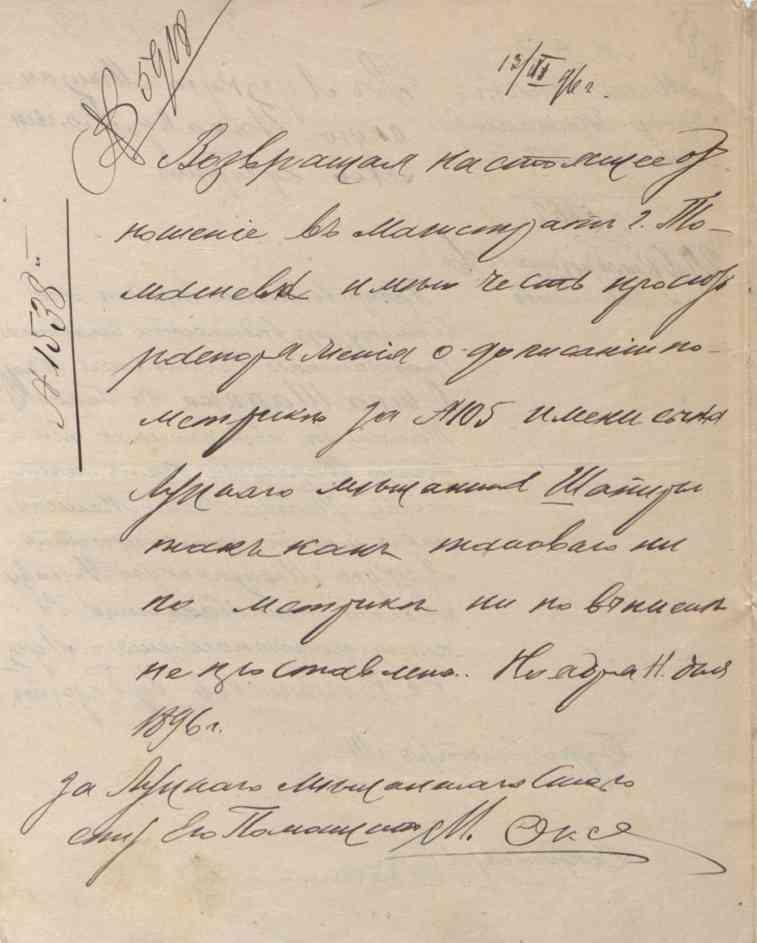 № 5918
13/XI 96 г.
№ 1538
Возвращая настоящее от
ношеніе въ Магистратъ г.
имѣю честь просить
распоряженія о дописаніи по
метрикѣ за №105 имени сына
Луцкаго мѣщанина Шапиры
такъ какъ таковаго ни
по метрикѣ ни по
не проставлено. Ноября 11 дня
1896 г.
За Луцкаго мѣщанскаго Старо
сту Его Помощникъ М. Окс